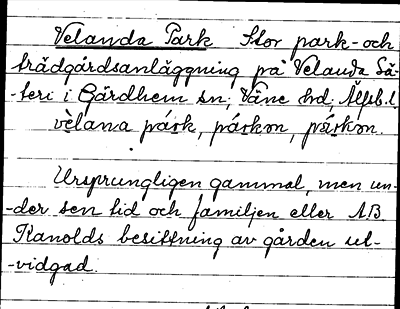 Velanda Park Stor park- och
trädgårdsanläggning på Velanda Sä-
-teri i Gärdhem sn, Väne hd, Älfsb.l.
vèlana párk, párkən, párkən.
Ursprungligen gammal, men un-
-der sen tid och familjen eller AB
Kanolds besittning av gården ut-
-vidgad.